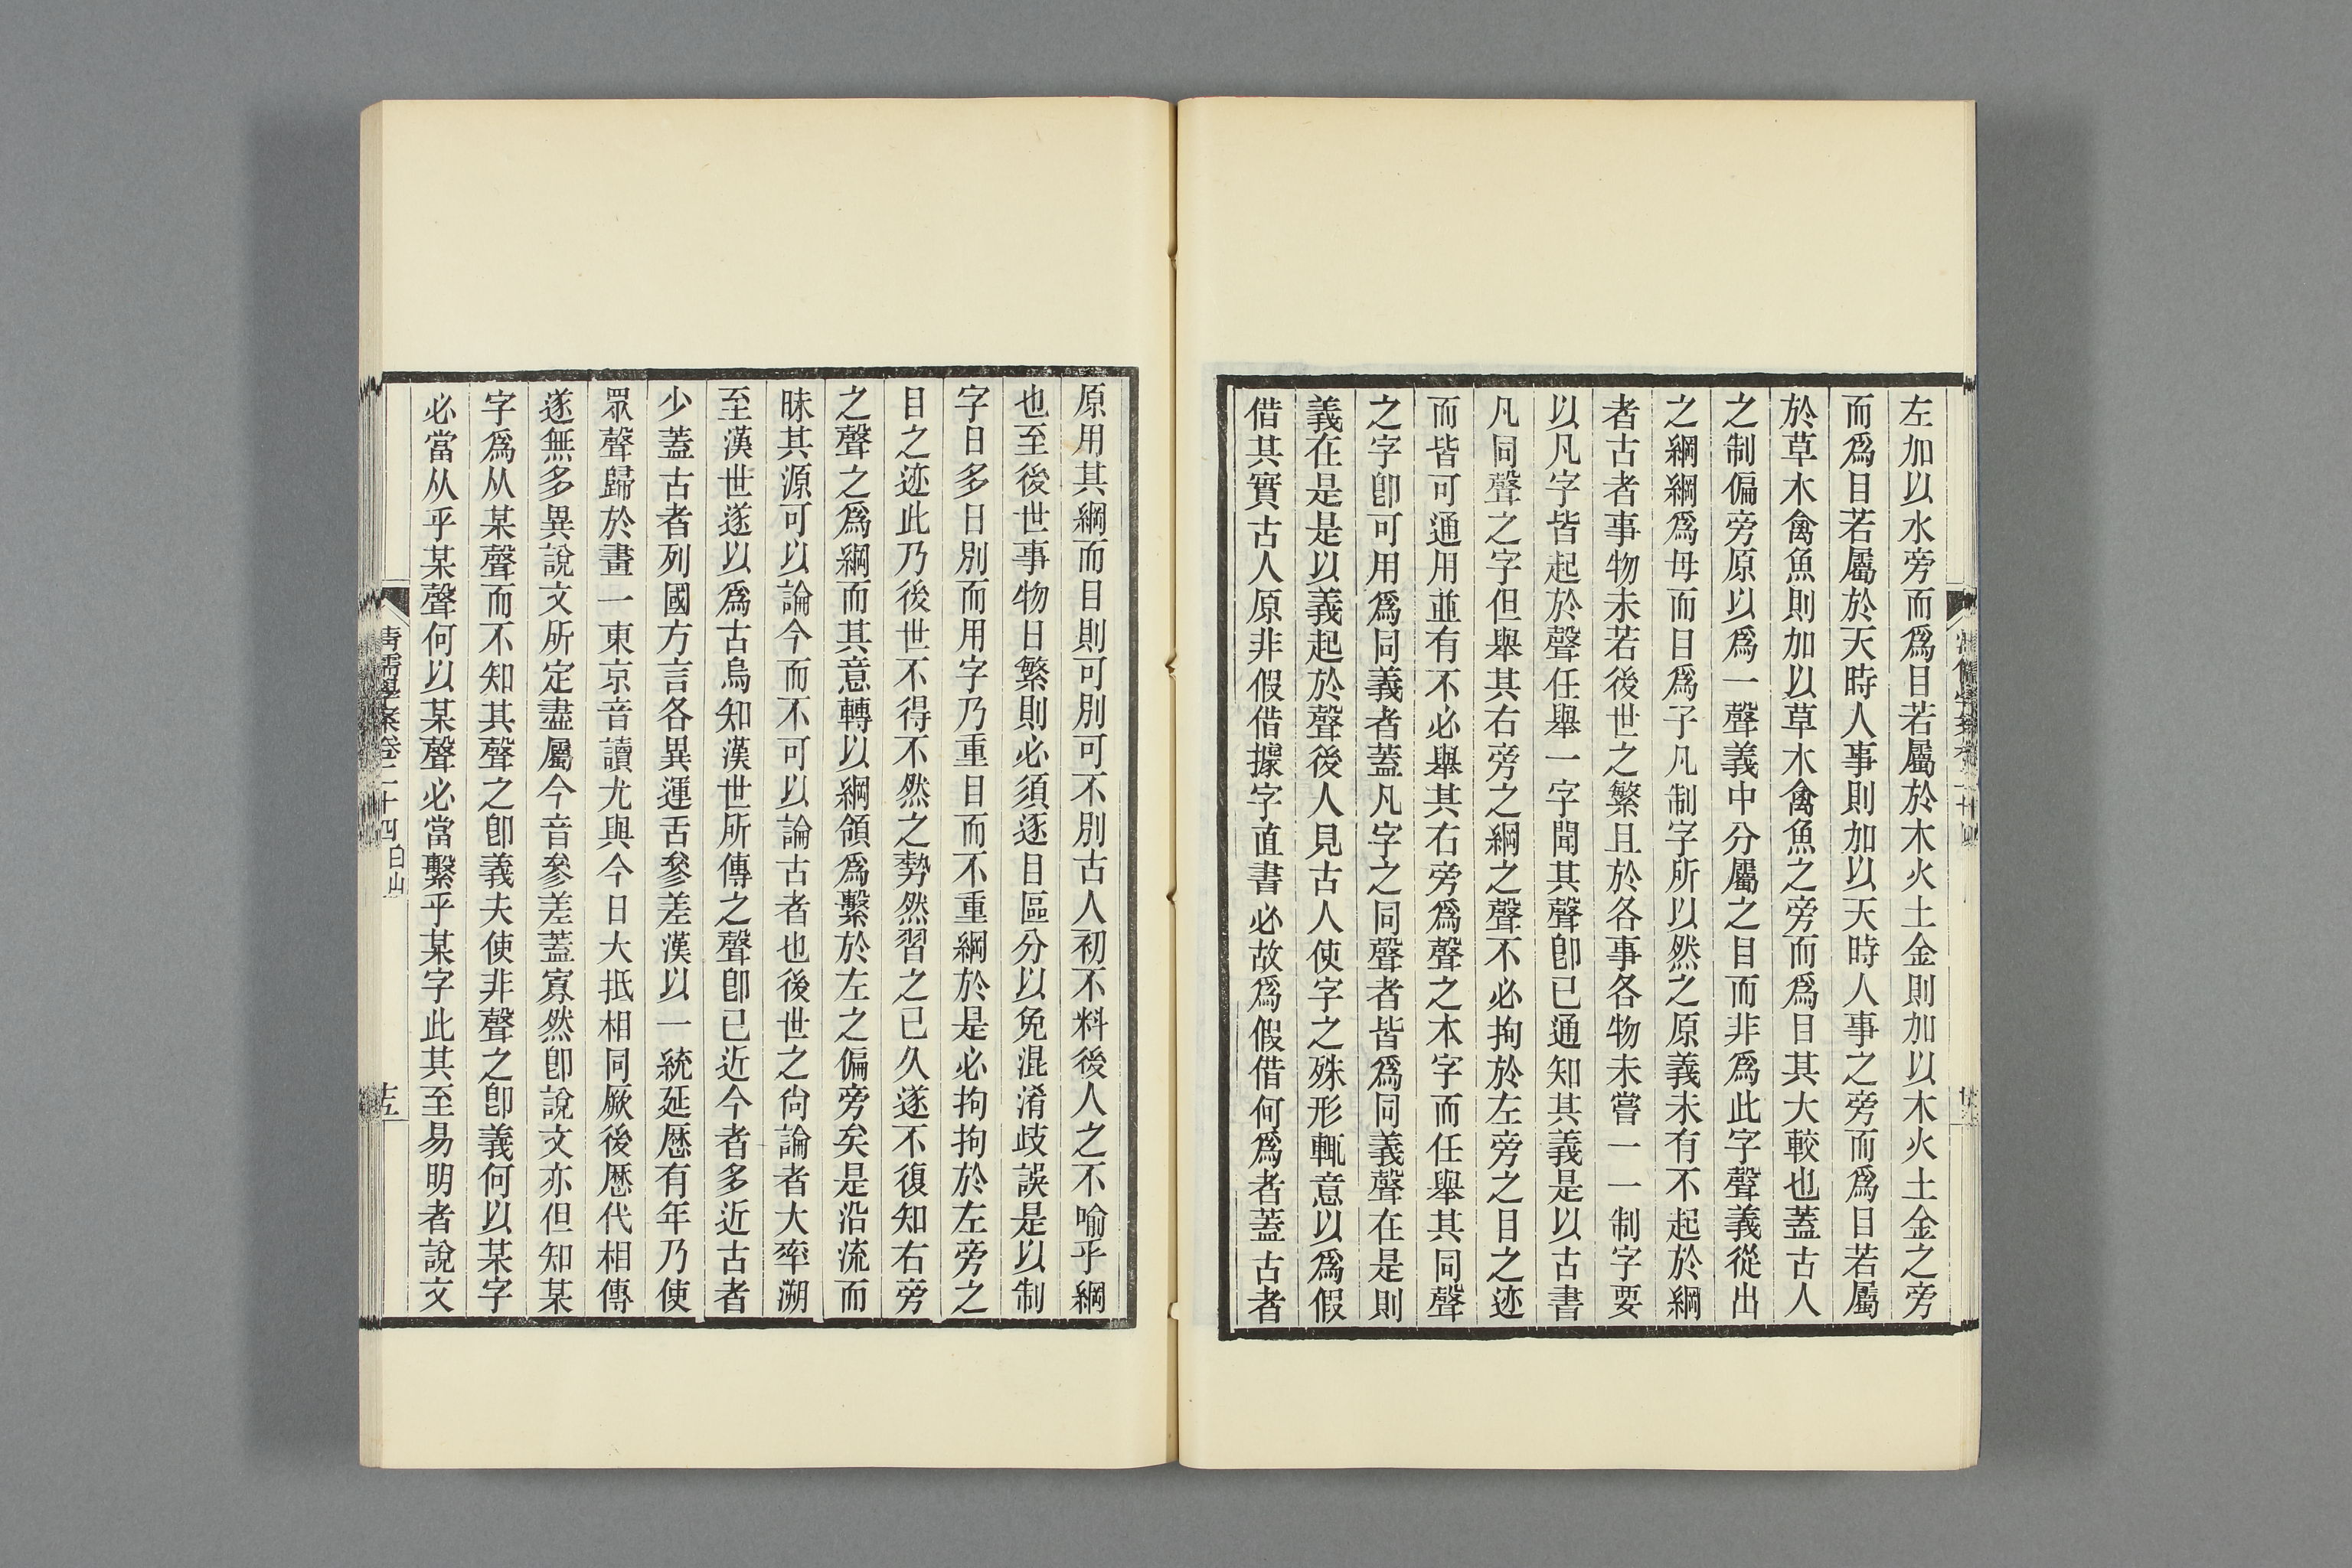 左加以水旁而爲目若屬於木火土金則加以木火土金之旁
而爲目若屬於天時人事則加以天時人事之旁而爲目若屬
於草木禽魚則加以草木禽魚之旁而爲目其大較也蓋古人
之制偏旁原以爲一聲義中分屬之目而非爲此字聲義從出
之綱綱爲母而目爲子凡制字所以然之原義未有不起於綱
者古者事物未若後世之繁且於各事各物未嘗一一制字要
以凡字皆起於聲任舉一字聞其聲卽已通知其義是以古書
凡同聲之字但舉其右旁之綱之聲不必拘於左旁之目之迹
而皆可通用並有不必舉其右旁爲聲之本字而任舉其同聲
之字卽可用爲同義者蓋凡字之同聲者皆爲同義聲在是則
義在是是以義起於聲後人見古人使字之殊形輒意以爲假
借其實古人原非假借據字直書必故爲假借何爲者蓋古者
原用其綱而目則可別可不別古人初不料後人之不喻乎綱
也至後世事物日繁則必須逐目區分以免混淆歧誤是以制
字日多日別而用字乃重目而不重綱於是必拘拘於左旁之
目之迹此乃後世不得不然之勢然習之已久遂不復知右旁
之聲之爲綱而其意轉以綱領爲繫於左之偏旁矣是沿流而
昧其源可以論今而不可以論古者也後世之尙論者大率溯
至漢世遂以爲古烏知漢世所傳之聲卽已近今者多近古者
少蓋古者列國方言各異運舌參差漢以一統延歷有年乃使
眾聲歸於畫一東京音讀尤與今日大抵相同厥後歷代相傳
遂無多異說文所定盡屬今音參差蓋寡然卽說文亦但知某
字爲从某聲而不知其聲之卽義夫使非聲之卽義何以某字
必當从乎某聲何以某聲必當繫乎某字此其至易明者說文
清儒學案卷二十四
白山